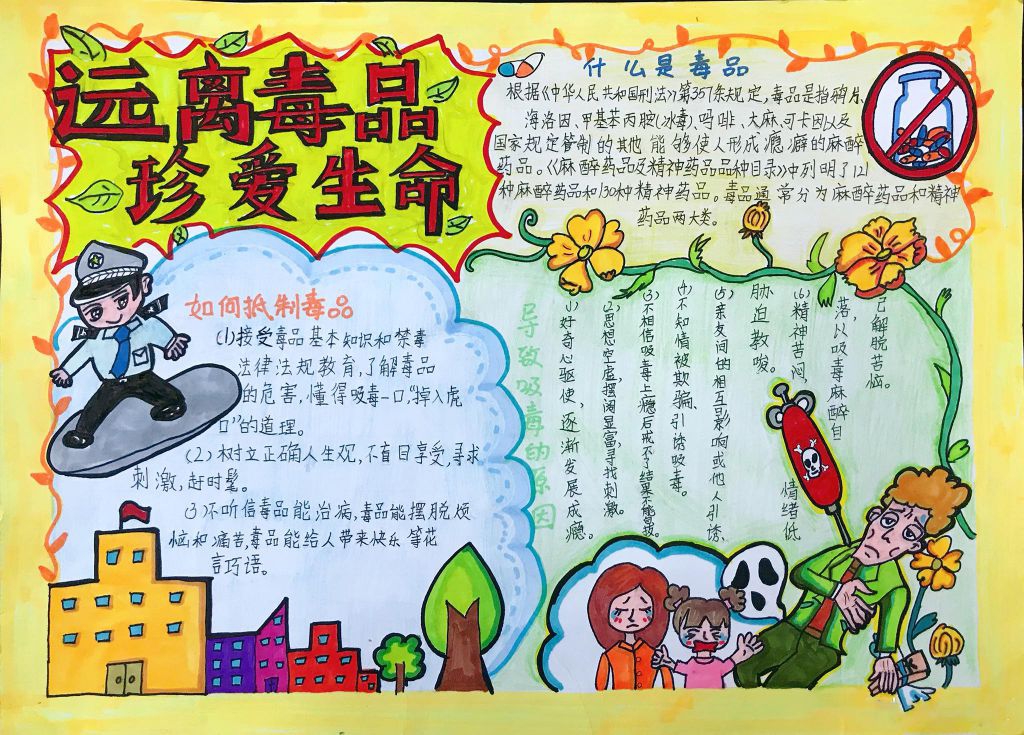 远离毒品
珍爱生命
什么是毒品
根据《中华人民共和国刑法》第357条规定,毒品是指鸦片、
海洛因、甲基苯丙胺(冰毒)、吗啡、大麻、可卡因以及
国家规定管制的其他能够使人形成瘾癖的麻醉
药品。《麻醉药品及精神药品品种目录》中列明了121
种麻醉药品和130种精神药品。毒品通常分为麻醉药品和精神
药品两大类。
如何抵制毒品
(1)接受毒品基本知识和禁毒
法律法规教育,了解毒品
的危害,懂得吸毒一口"掉入虎
口"的道理。
(2)树立正确人生观,不盲目享受,寻求
刺激,赶时髦。
(3)不听信毒品能治病,毒品能摆脱烦
恼和痛苦,毒品能给人带来快乐等花
言巧语。
导致吸毒的原因
(1)好奇心驱使,逐渐发展成瘾。
(2)思想空虚,摆阔显富,寻找刺激。
(3)不相信吸毒上瘾后戒不了结果不能自拔。
(4)不知情被欺骗、引诱吸毒。
(5)亲友间的相互影响或他人引诱、
胁迫教唆。
(6)精神苦闷,情绪低
落,以吸毒麻醉自
己解脱苦恼。